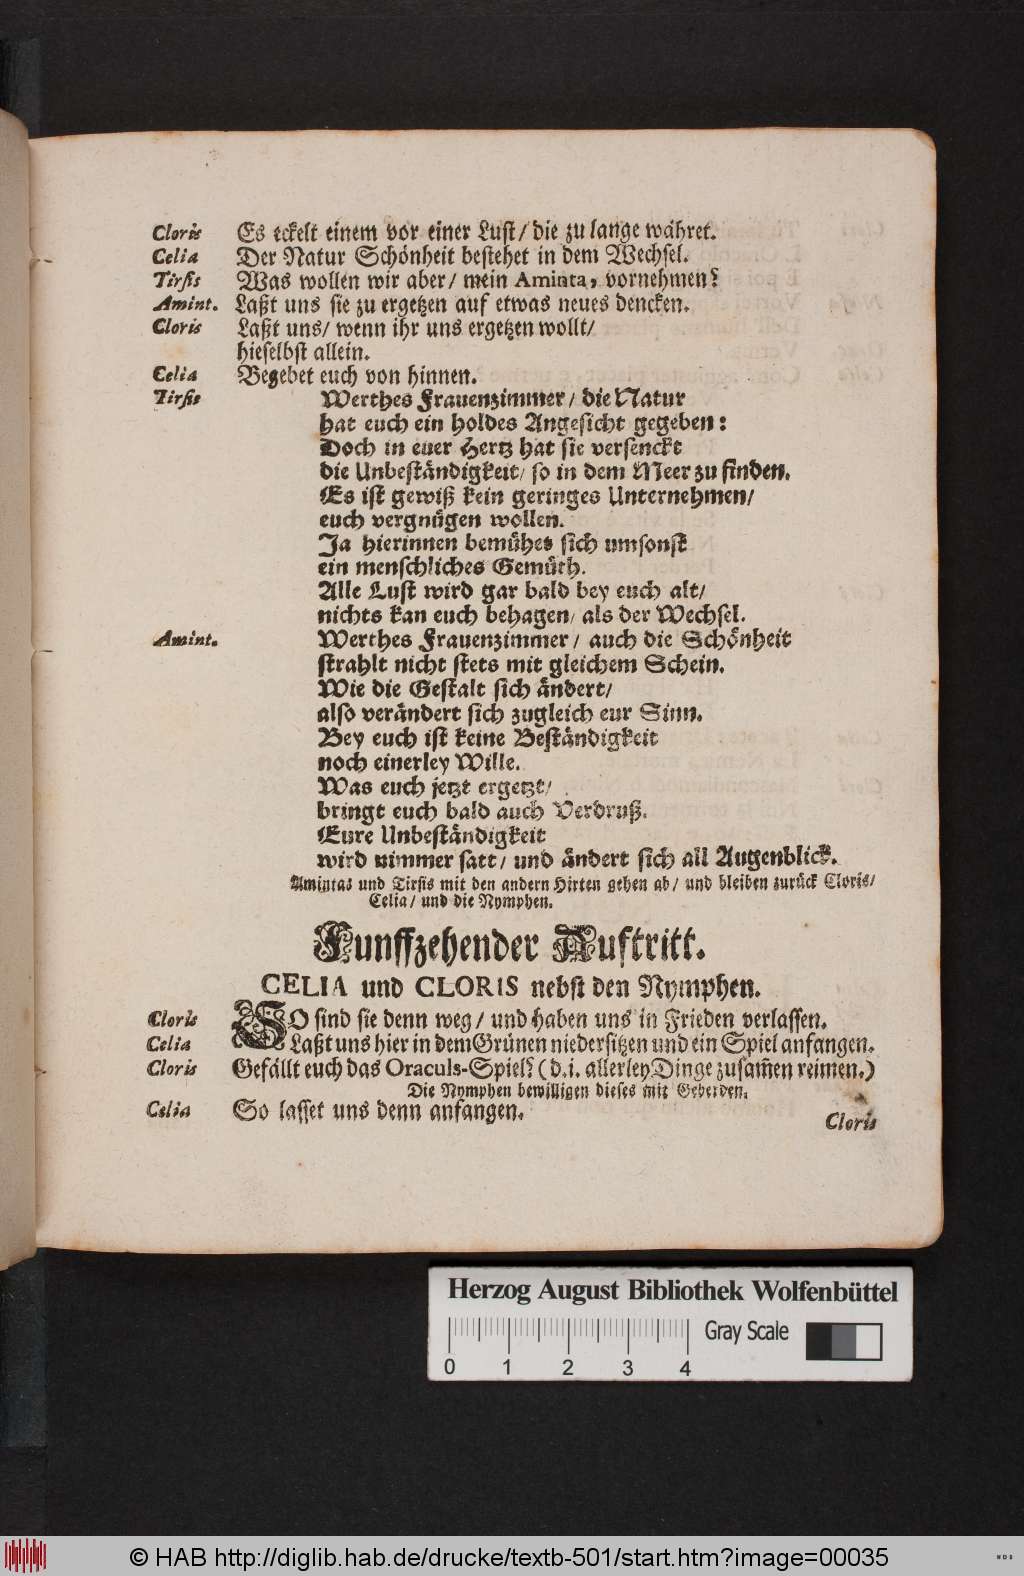 Cloris Es eckelt einem vor einer Lust/ die zu lange währet.
Celia Der Natur Schönheit bestehet in dem Wechsel.
Tirsis Was wollen wir aber/ mein Aminta, vornehmen?
Amint. Laßt uns sie zu ergetzen auf etwas neues dencken.
Cloris Laßt uns/ wenn ihr uns ergetzen wollt/
hieselbst allein.
Celia Begebet euch von hinnen.
Tirsis Werthes Frauenzimmer/ die Natur
hat euch ein holdes Angesicht gegeben:
Doch in euer Hertz hat sie versenckt
die Unbeständigkeit/ so in dem Meer zu finden.
Es ist gewiß kein geringes Unternehmen/
euch vergnügen wollen.
Ja hierinnen bemühet sich umsonst
ein menschliches Gemüth.
Alle Lust wird gar bald bey euch alt/
nichts kan euch behagen/ als der Wechsel.
Amint. Werthes Frauenzimmer/ auch die Schönheit
strahlt nicht stets mit gleichem Schein.
Wie die Gestalt sich ändert/
also verändert sich zugleich eur Sinn.
Bey euch ist keine Beständigkeit
noch einerley Wille.
Was euch jetzt ergetzt/
bringt euch bald auch Verdruß.
Eure Unbeständigkeit
wird nimmer satt/ und ändert sich all Augenblick.
Amintas und Tirsis mit den andern Hirten gehen ab/ und bleiben zurück Cloris/
Celia/ und die Nymphen.
Funffzehender Auftritt.
CELIA und CLORIS nebst den Nymphen.
Cloris SO sind sie denn weg/ und haben uns in Frieden verlassen.
Celia Laßt uns hier in dem Grünen niedersitzen und ein Spiel anfangen.
Cloris Gefällt euch das Oraculs-Spiel? (d.i. allerley Dinge zusam̃en reimen.)
Die Nymphen bewilligen dieses mit Geberden.
Celia So lasset uns denn anfangen.
Cloris
Herzog August Bibliothek Wolfenbüttel
Gray Scale
0 1 2 3 4
© HAB http://diglib.hab.de/drucke/textb-501/start.htm?image=00035